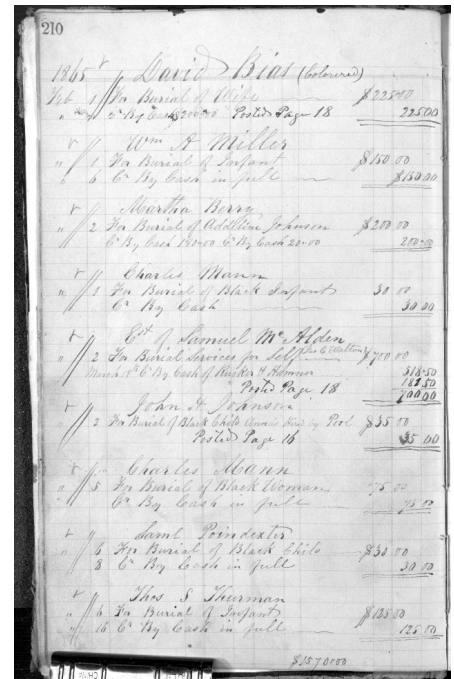 210
1865 David Bias (Coloured)
Feb 1 For Burial of Wife $225.00
" Cr By Cash $200.00 Posted Page 18 225.00
Wm A Miller
" 1 For Burial of Infant $150.00
" 6 Cr By Cash in full $150.00
Martha Berry
" 2 For Burial of Addline Johnson $200.00
Cr By Cash 180.00 Cr By Cash 20.00 200.00
Charles Mann
" 1 For Burial of Black Infant 30 00
Cr By Cash 30 00
Est of Samuel McAlden
" 2 For Burial Services for Self $700.00
March 18th Cr By Cash of Rucker 518.50
Posted Page 18 182.50
700.00
John A Johnson
" 2 For Burial of Black Child by Pool $35 00
Posted Page 16 35 00
Charles Mann
" 5 For Burial of Black Woman 75 00
Cr By Cash in full 75 00
Saml Poindexter
" 6 For Burial of Black Child $30 00
8 Cr By Cash in full 30 00
Thos S Thurman
" 6 For Burial of Infant $125.00
" 16 Cr By Cash in full 125.00
$1570.00